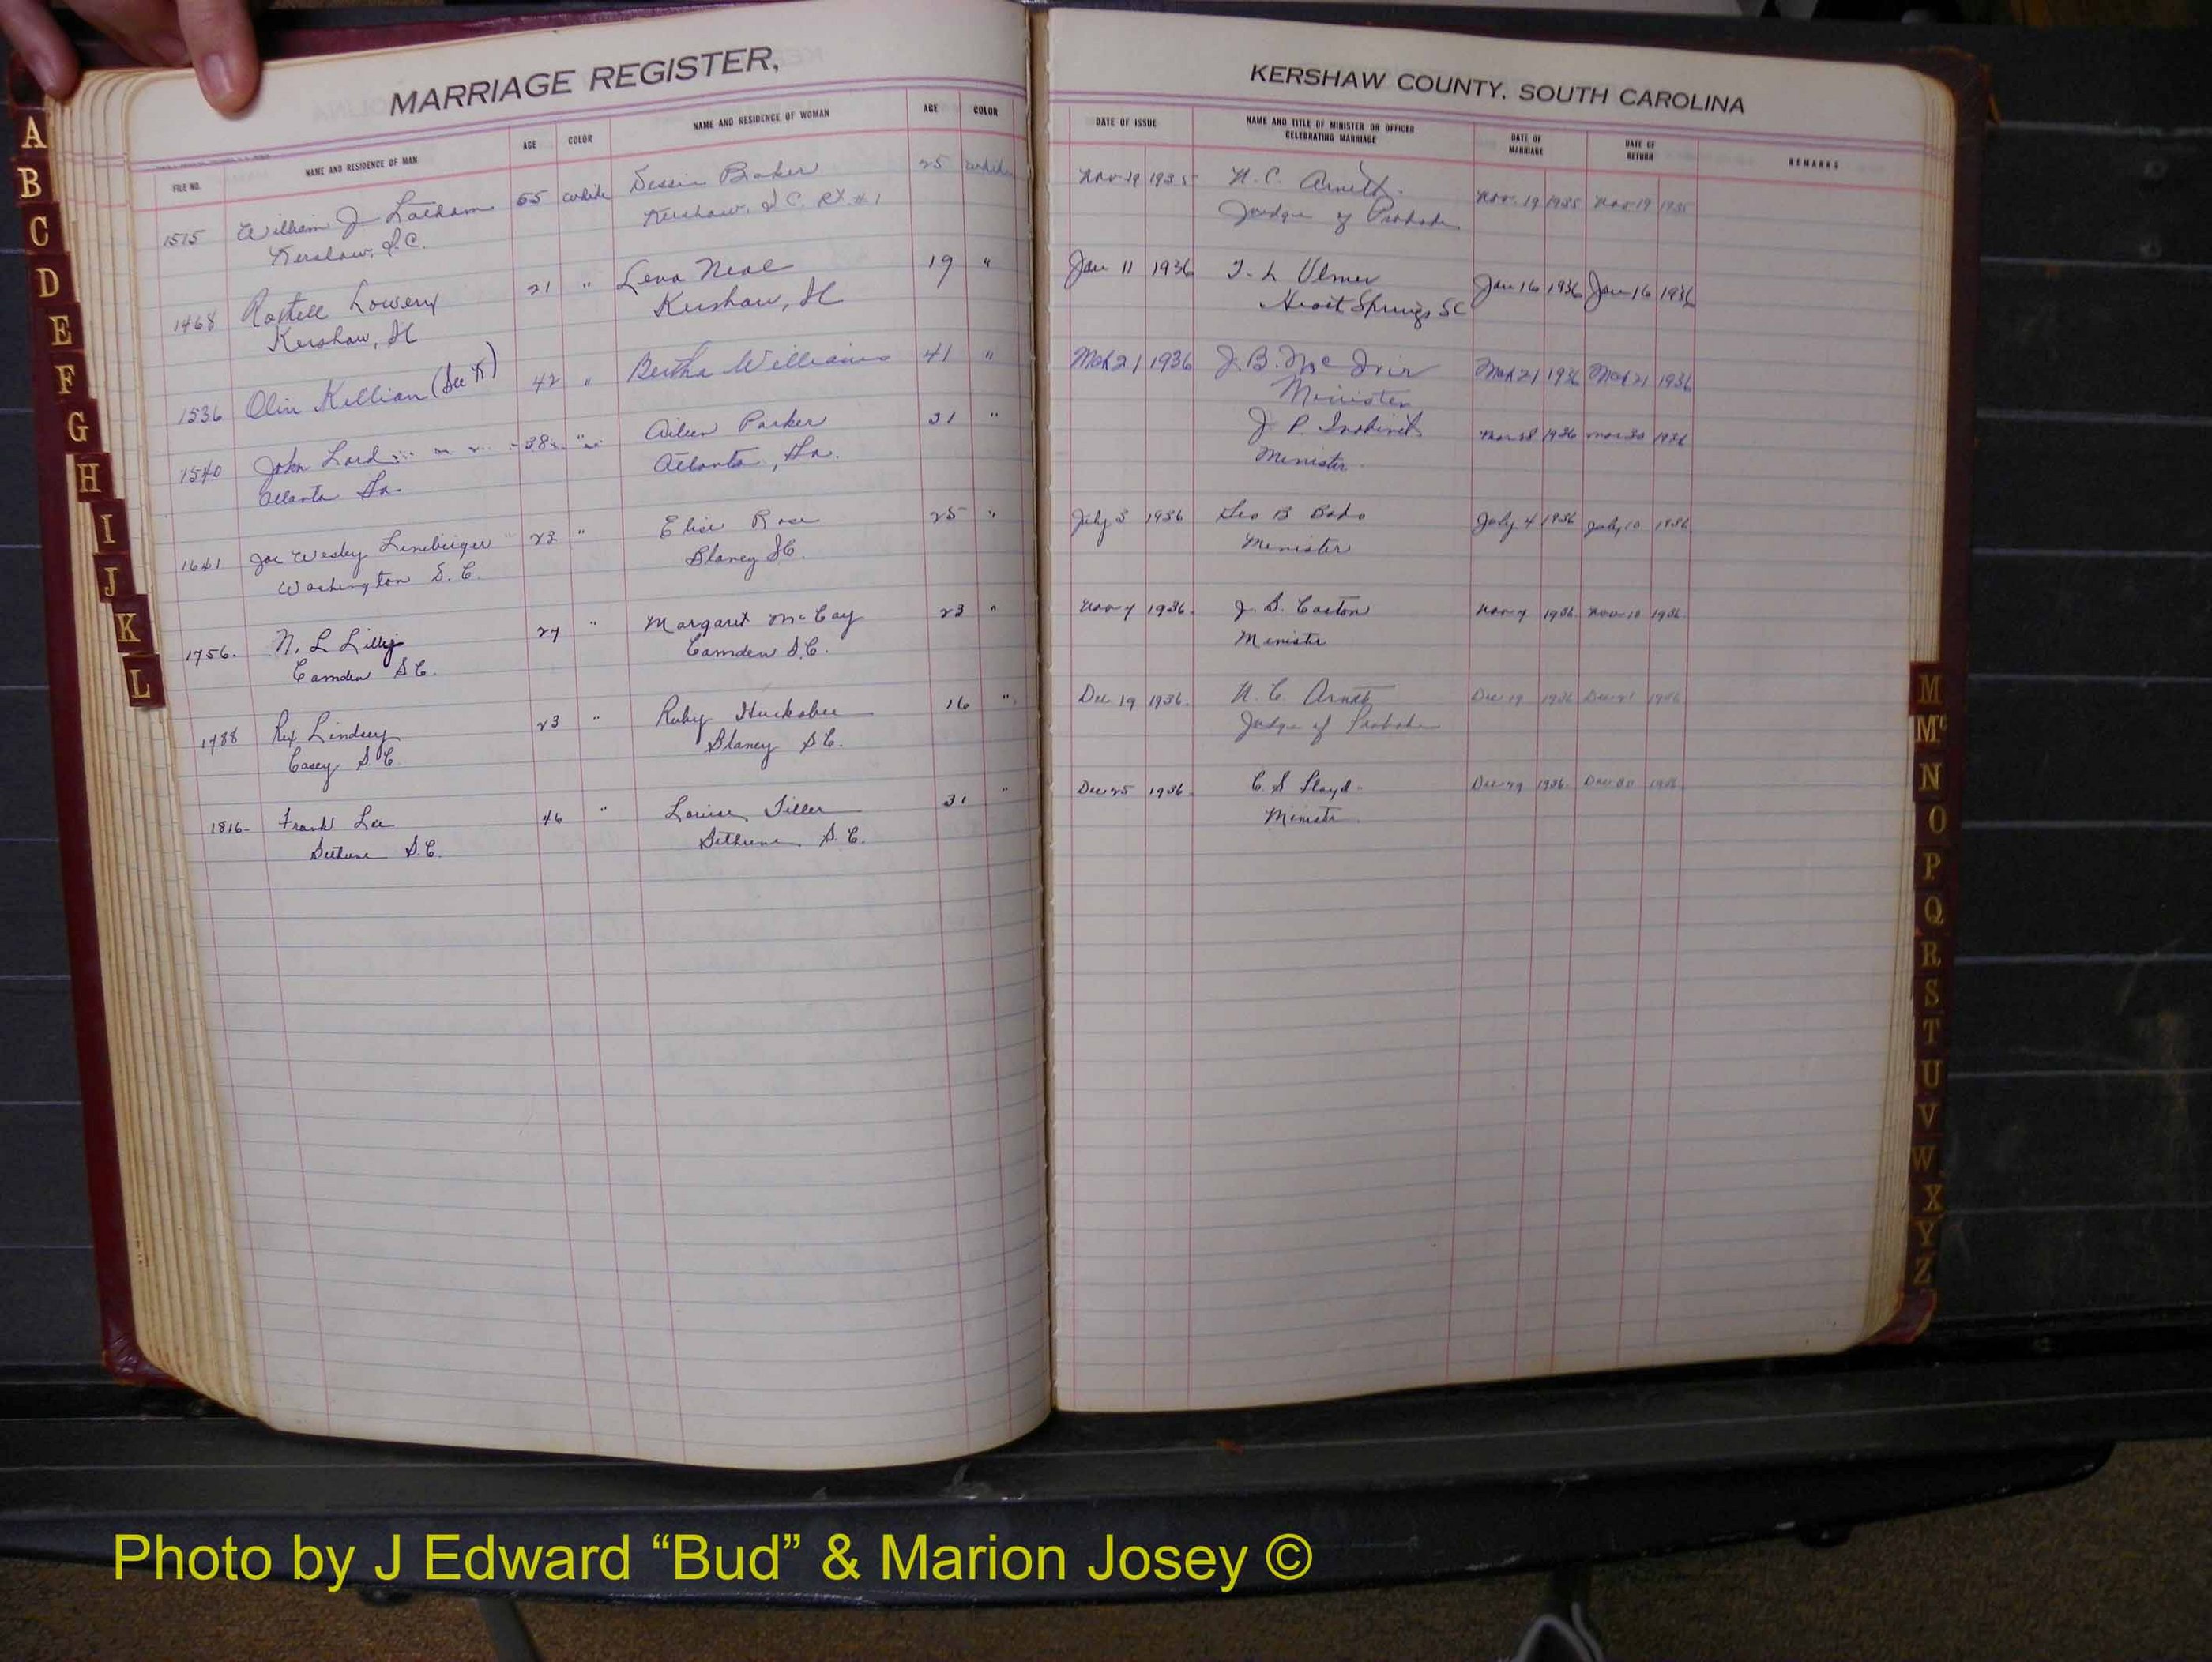 MARRIAGE REGISTER,
FILE NO. NAME AND RESIDENCE OF MAN AGE COLOR NAME AND RESIDENCE OF WOMAN AGE COLOR
1515 William J Latham 55 white Dessie Baker 25 white
Kershaw, S.C. Kershaw, S.C. Rt #1
1468 Lowery 21 " Leva Neal 19 "
Kershaw, SC Kershaw, SC
1536 Olin Killian (See K) 42 " Bertha Williams 41 "
1540 John Lord 38 " Aileen Parker 31 "
Atlanta Ga. Atlanta, Ga.
1641 Joe Wesley Lineberger 23 " Elise Rose 25 "
Washington D. C. Blaney SC.
1756. N. L Lillig 27 " Margaret McCay 23 "
Camden S C. Camden S.C.
1788 Rex Lindsey 23 " Ruby Huckabee 16 "
Casey S.C. Blaney S C.
1816- Frank Lee 46 " Louise Tiller 31 "
Bethune S.C. Bethune S.C.
KERSHAW COUNTY. SOUTH CAROLINA
DATE OF ISSUE NAME AND TITLE OF MINISTER OR OFFICER CELEBRATING MARRIAGE DATE OF MARRIAGE DATE OF RETURN REMARKS
Nov 19 1935 N. C. Arnett. Nov. 19 1935 Nov 19 1935
Judge of Probate
Jan 11 1936 T. L Ulmer Jan 16 1936 Jan 16 1936
Heath Springs SC
Mch 21 1936 J. B. Mch 21 1936 Mch 21 1936
Minister
J. P. Mar 28 1936 Mar 30 1936
Minister
July 3 1936 Geo B July 4 1936 July 10 1936
Minister
Nov 7 1936. J. S. Caston Nov 7 1936 Nov 10 1936
Minister
Dec 19 1936. N. C. Arnett Dec 19 1936 Dec 21 1936
Judge of Probate
Dec 25 1936. C. S Floyd Dec 29 1936 Dec 30 1936
Minister
A
B
C
D
E
F
G
H
I
J
K
L
M
Mc
N
O
P
Q
R
S
T
U
V
W
X
Y
Z
Photo by J Edward “Bud” & Marion Josey ©